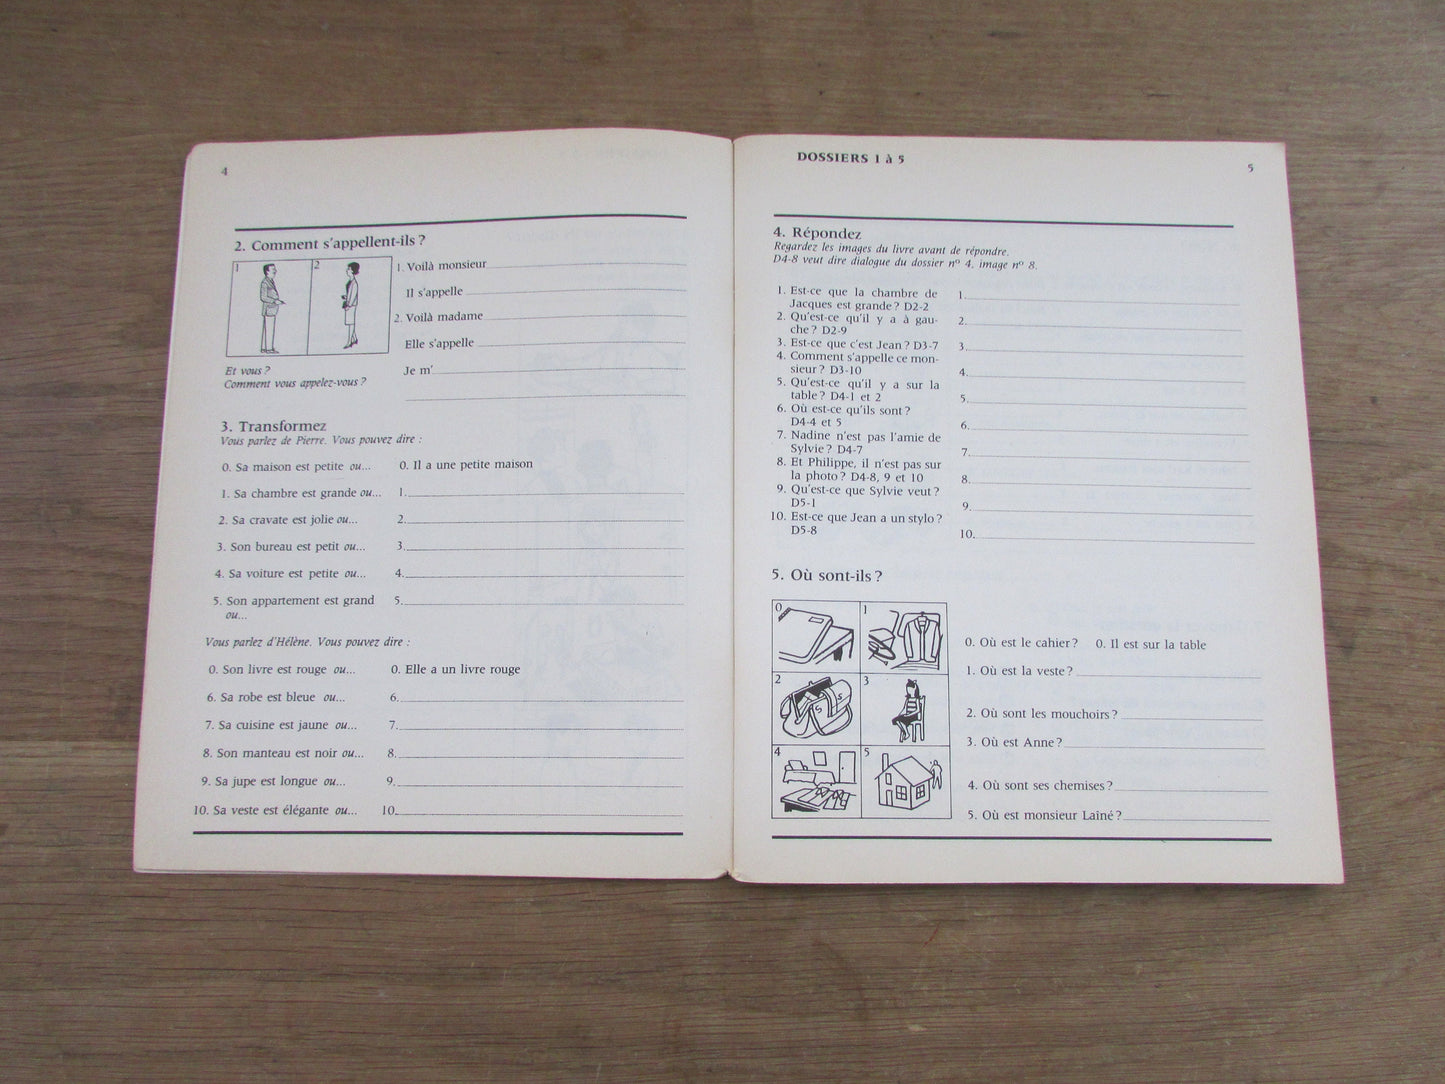 4
2. Comment s'appellent-ils ?
1
2
1. Voilà monsieur
Il s'appelle
2. Voilà madame
Elle s'appelle
Et vous ?
Comment vous appelez-vous ?
Je m'
3. Transformez
Vous parlez de Pierre. Vous pouvez dire :
0. Sa maison est petite ou... 0. Il a une petite maison
1. Sa chambre est grande ou... 1.
2. Sa cravate est jolie ou... 2.
3. Son bureau est petit ou... 3.
4. Sa voiture est petite ou... 4.
5. Son appartement est grand 5.
ou...
Vous parlez d'Hélène. Vous pouvez dire :
0. Son livre est rouge ou... 0. Elle a un livre rouge
6. Sa robe est bleue ou... 6.
7. Sa cuisine est jaune ou... 7.
8. Son manteau est noir ou... 8.
9. Sa jupe est longue ou... 9.
10. Sa veste est élégante ou... 10.
DOSSIERS 1 à 5
5
4. Répondez
Regardez les images du livre avant de répondre.
D4-8 veut dire dialogue du dossier nº 4, image nº 8.
1. Est-ce que la chambre de 1.
Jacques est grande ? D2-2
2. Qu'est-ce qu'il y a à gau- 2.
che ? D2-9
3. Est-ce que c'est Jean ? D3-7 3.
4. Comment s'appelle ce mon- 4.
sieur ? D3-10
5. Qu'est-ce qu'il y a sur la 5.
table ? D4-1 et 2
6. Où est-ce qu'ils sont ? 6.
D4-4 et 5
7. Nadine n'est pas l'amie de 7.
Sylvie ? D4-7
8. Et Philippe, il n'est pas sur 8.
la photo ? D4-8, 9 et 10
9. Qu'est-ce que Sylvie veut ? 9.
D5-1
10. Est-ce que Jean a un stylo ? 10.
D5-8
5. Où sont-ils ?
0
1
2
S
S
3
4
5
0. Où est le cahier ? 0. Il est sur la table
1. Où est la veste ?
2. Où sont les mouchoirs ?
3. Où est Anne ?
4. Où sont ses chemises ?
5. Où est monsieur Laîné ?